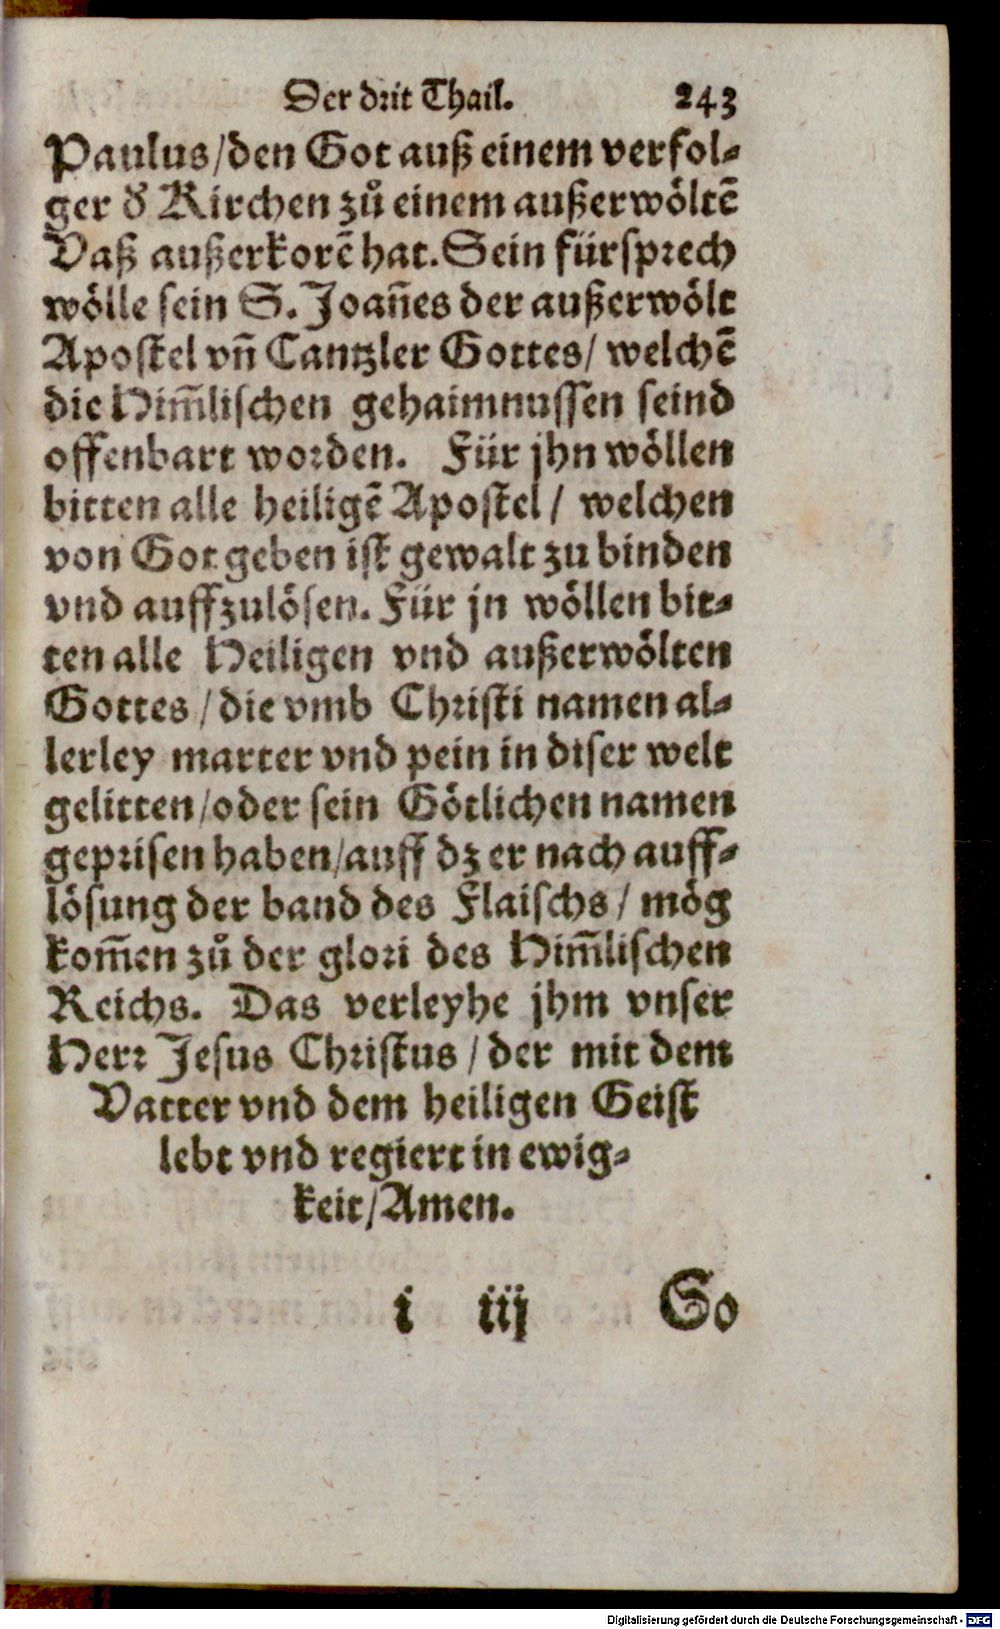 Der drit Thail. 243
Paulus/den Got auß einem verfol-
ger d̛ Kirchen zů einem außerwöltē
Vaß außerkorē hat. Sein fürsprech
wölle sein S. Joañes der außerwölt
Apostel vñ Cantzler Gottes/ welchē
die Him̃lischen gehaimnussen seind
offenbart worden. Für jhn wöllen
bitten alle heiligē Apostel/ welchen
von Got geben ist gewalt zu binden
vnd auffzulösen. Für jn wöllen bit-
ten alle Heiligen vnd außerwölten
Gottes/die vmb Christi namen al-
lerley marter vnd pein in diser welt
gelitten/oder sein Götlichen namen
geprisen haben/auff dz er nach auff-
lösung der band des Flaischs/ mög
kom̃en zů der glori des Him̃lischen
Reichs. Das verleyhe jhm vnser
Herr Jesus Christus/der mit dem
Vatter vnd dem heiligen Geist
lebt vnd regiert in ewig-
keit/Amen.
i iij So
Digitalisierung gefördert durch die Deutsche Forschungsgemeinschaft - DFG